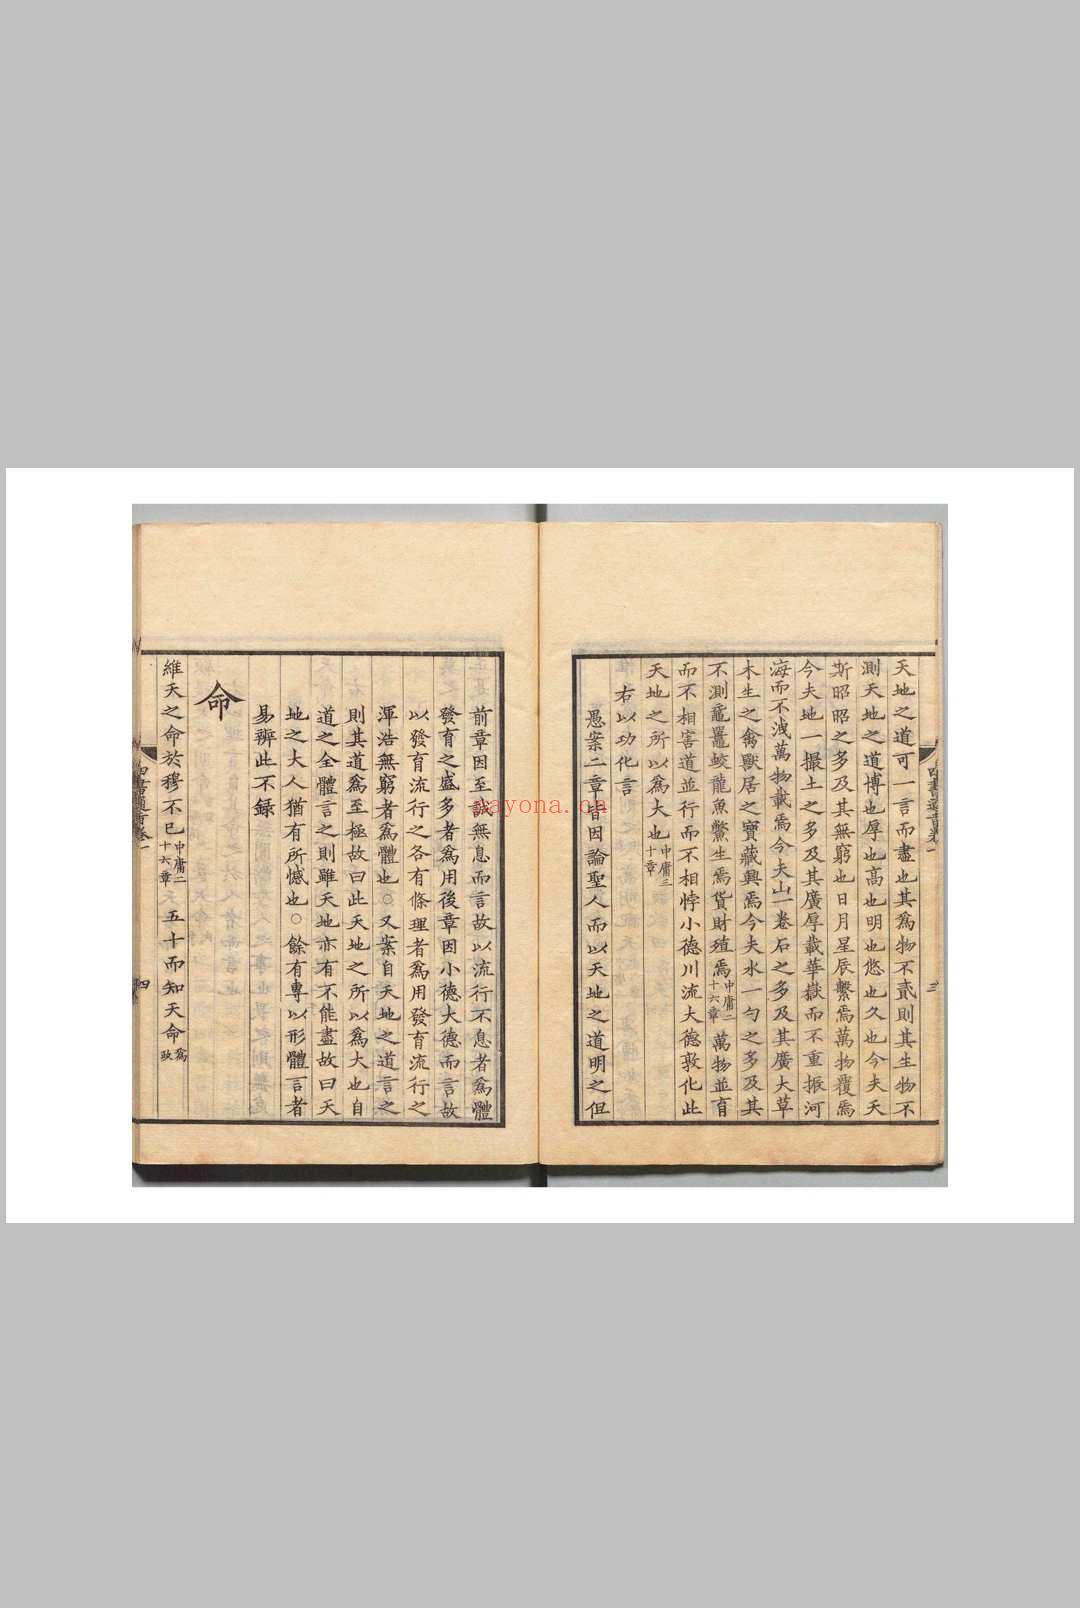 天地之道可一言而盡也其爲物不貳則其生物不
測天地之道博也厚也高也明也悠也久也今夫天
斯昭昭之多及其無窮也日月星辰繫焉萬物覆焉
今夫地一撮土之多及其廣厚載華嶽而不重振河
海而不洩萬物載焉今夫山一卷石之多及其廣大草
木生之禽獸居之寶藏興焉今夫水一勺之多及其
不測黿鼉蛟龍魚鱉生焉貨財殖焉中庸二十六章萬物並育
而不相害道並行而不相悖小德川流大德敦化此
天地之所以爲大也中庸三十章
右以功化言
愚案二章皆因論聖人而以天地之道明之但
三
前章因至誠無息而言故以流行不息者爲體
發育之盛多者爲用後章因小德大德而言故
以發育流行之各有條理者爲用發育流行之
渾浩無窮者爲體也○又案自天地之道言之
則其道爲至極故曰此天地之所以爲大也自
道之全體言之則雖天地亦有不能盡故曰天
地之大人猶有所憾也○餘有專以形體言者
易辨此不錄
命
維天之命於穆不已中庸二十六章五十而知天命爲政
四書通旨卷一
四
nayona.cn